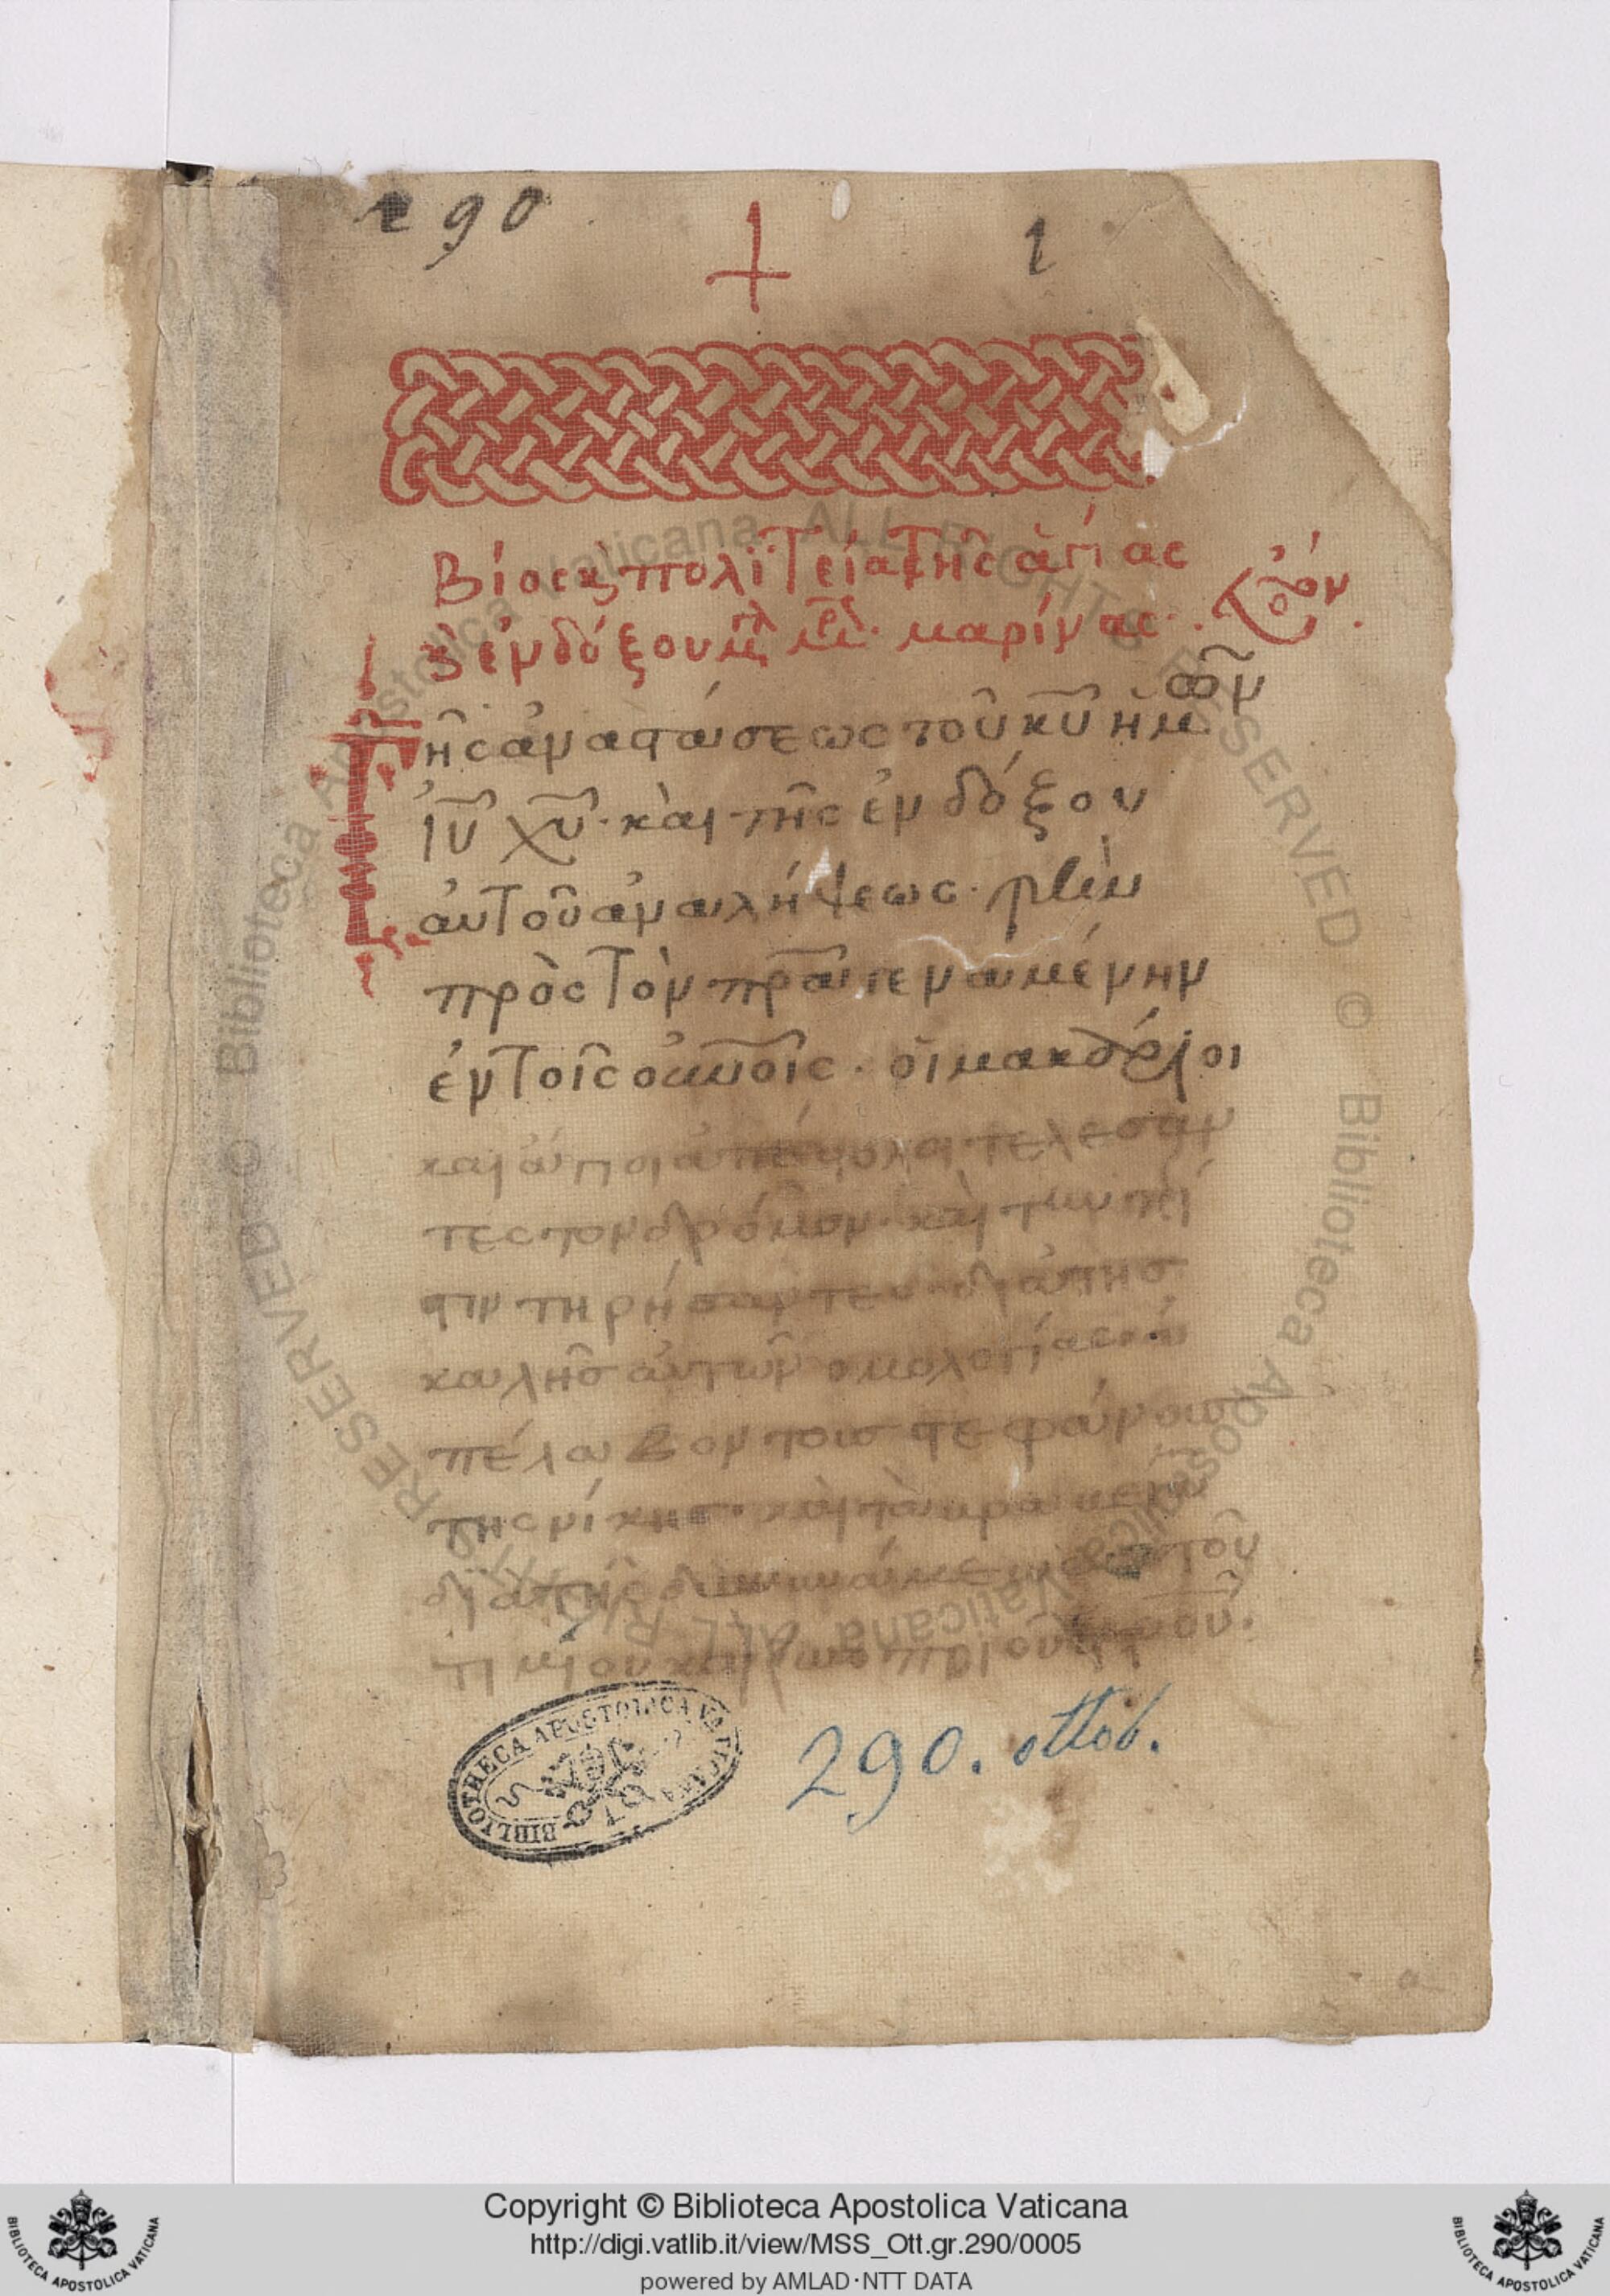 290
1
Βίος κ πολϊτεία τῆς ἁγίας
κ ἐνδόξου μεγλ μρ. μαρίνας·
Τῆς ἀναστάσεως τοῦ κῡ ἡμῶν
ἰῡ χῡ· καὶ τῆς ἐνδόξου
αὐτοῦ ἀναλήψεως· τὴν
πρὸς τὸν πρα γεναμένην
ἐν τοῖς οὐνοῖς· οἱ μακάριοι
καὶ ἅγιοι ἀπόστολοι τελεσαν
τες τον δρόμον· καὶ την πί
στιν τηρήσαντες· διὰ τῆς
καλῆς αὐτῶν ομολογίας· ἀ
πέλαβον τοις στεφάνους
της νίκης· καὶ τὰ
διὰ τῆς δυνάμεως τοῦ
τιμίου καὶ ζωοποιοῦ στροῦ·
BIBLIOTHECA APOSTOLICA VATICANA
290. ottob.
Biblioteca Apostolica Vaticana ALL RIGHTS RESERVED ©
Biblioteca Apostolica Vaticana ALL RIGHTS RESERVED ©
Copyright © Biblioteca Apostolica Vaticana
http://digi.vatlib.it/view/MSS_Ott.gr.290/0005
powered by AMLAD·NTT DATA
BIBLIOTECA APOSTOLICA VATICANA
BIBLIOTECA APOSTOLICA VATICANA